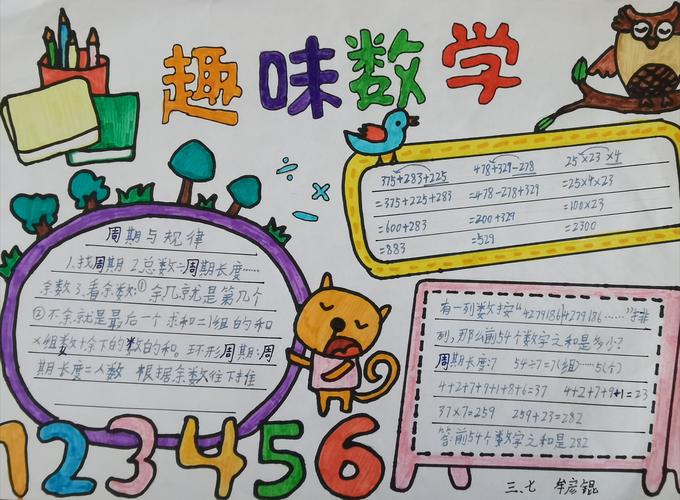 趣味数学
375+283+225
=375+225+283
=600+283
=883
478+329-278
=478-278+329
=200+329
=529
25×23×4
=25×4×23
=100×23
=2300
周期与规律
1.找周期 2.总数÷周期长度……
余数 3.看余数:①余几就是第几个
②不余就是最后一个 求和=1组的和
×组数+余下的数的和。环形周期:周
期长度=人数 根据余数往下推
有一列数按“4279186 4279186……”排
列,那么前54个数字之和是多少?
周期长度:7 54÷7=7(组)……5(个)
4+2+7+9+1+8+6=37 4+2+7+9+1=23
37×7=259 259+23=282
答:前54个数字之和是282
1 2 3 4 5 6
三、七 牟宸锟